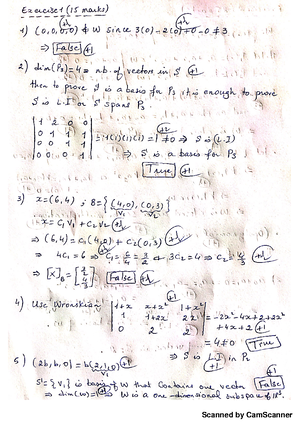 Exercise 1 (15 marks)
1) (0,0,0,0) ∉ W since 3(0)-2(0)+0-0 ≠ 3
⇒ False +1
2) dim(P₃)=4 = nb. of vectors in S
then to prove S is a basis for P₃ it is enough to prove
S is L.I or S spans P₃
|1 2 0 0
0 1 1 1
0 0 1 1
0 0 0 1| = 1(1)(1)(1) = 1 ≠ 0 ⇒ S is (L.I)
⇒ S is a basis for P₃
True +1
3) x=(6,4) ; B={(4,0),(0,3)}
V₁ V₂
x = C₁V₁ + C₂V₂
⇒ (6,4) = C₁(4,0) + C₂(0,3)
⇒ 4C₁ = 6 ⇒ C₁ = 6/4 = 3/2 & 3C₂ = 4 ⇒ C₂ = 4/3
⇒ [x]_B = [3/2 4/3] False +1
4) Use Wronskian |1+x x+x² 1+x²
1 1+2x 2x
0 2 2| = -2x²-4x+2+2x²
+4x+2 +1
= 4 ≠ 0 True
⇒ S is L.I in P₂
5) (2b,b,0) = b(2,1,0)
V₁
S={V₁} is basis of W that contains one vector False
⇒ dim(W)=1 ⇒ W is a one-dimensional subspace of R³.
Scanned by CamScanner